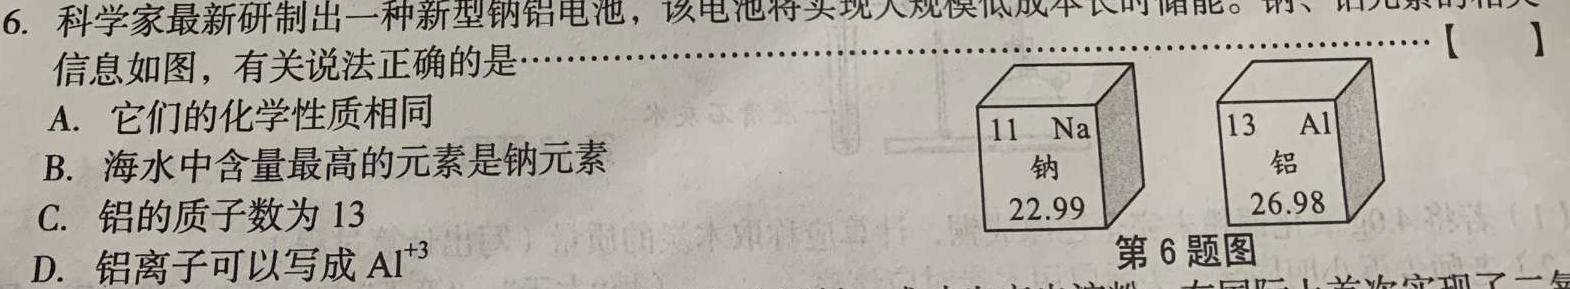 6. 科学家最新研制出一种新型钠铝电池，该电池将实现大规模低成本长时储能。钠、铝元素的相关
信息如图，有关说法正确的是……………………………………………………………【　】
A. 它们的化学性质相同
B. 海水中含量最高的元素是钠元素
C. 铝的质子数为 13
D. 铝离子可以写成 Al⁺³
11 Na
钠
22.99
13 Al
铝
26.98
第 6 题图